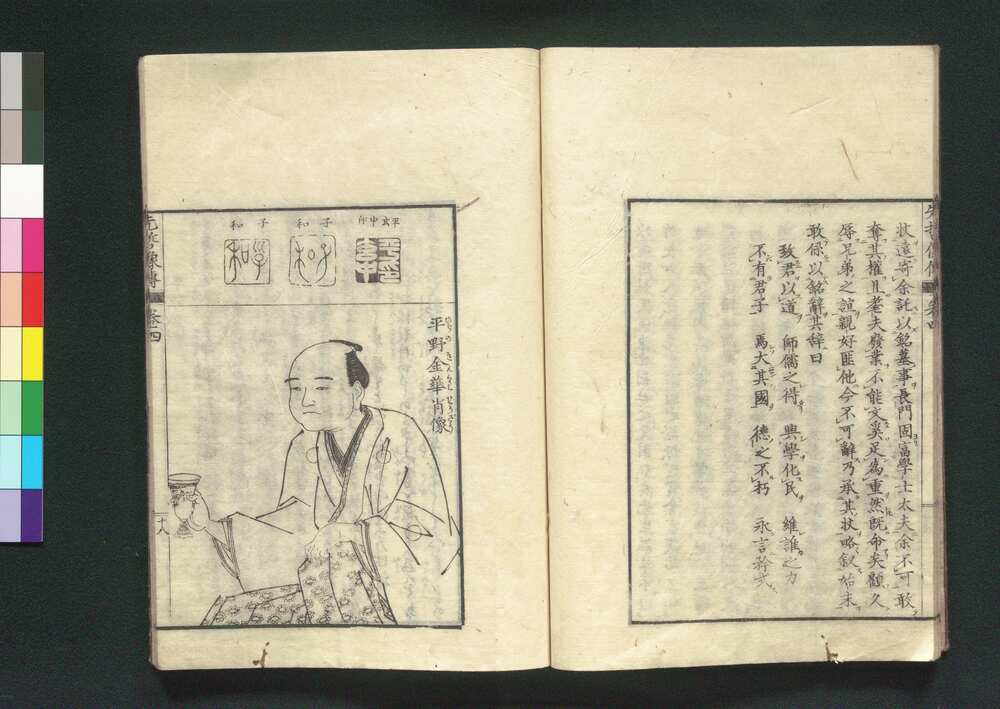 状遠寄余託以銘墓事長門固富學士太夫余不可敢
奪其權且老夫發業不能文奚足為重然既命矣顧久
辱兄弟之誼親好匪他今不可辭乃承其状略叙始末
敢係以銘辭其辞曰
致君以道 師儒之得 興學化民 維誰之力
不有君子 焉大其國 德之不朽 永言矜式
先哲像傳 巻四
平玄中印
子和
子和
平野金華肖像
ひらのきんくわせうざう
先哲像傳 巻四
十八